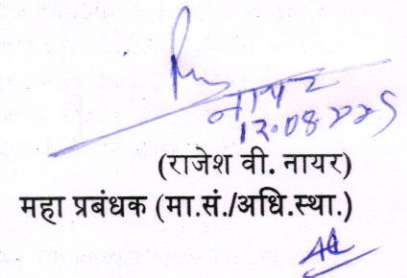 नायर
12.08.2025
(राजेश वी. नायर)
महा प्रबंधक (मा.सं./अधि.स्था.)